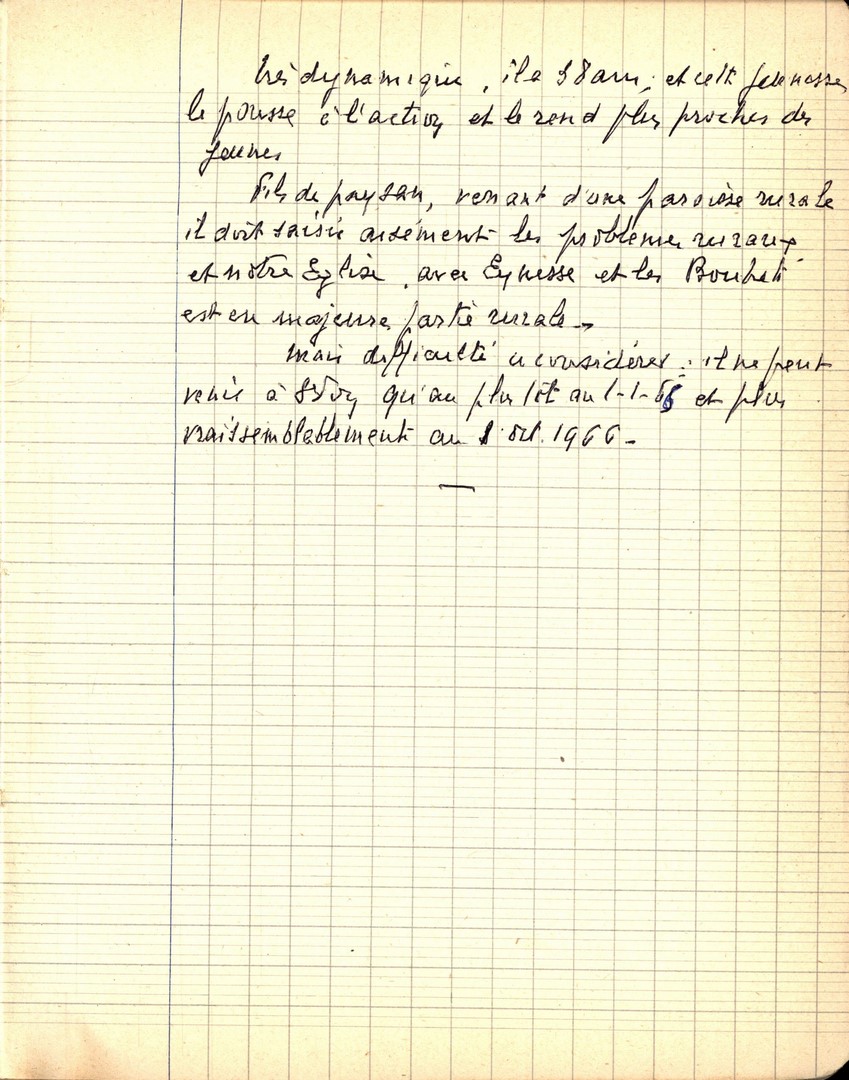 Très dynamique, il a 38 ans, et cette jeunesse
le pousse à l'action et le rend plus proches des
jeunes
Fils de paysan, venant d'une paroisse rurale
il doit saisir aisément les problèmes ruraux
et notre Eglise, avec Eynesse et les Bouhets
est en majeure partie rurale -
Mais difficulté à considérer : il ne peut
venir à Ste Foy qu'au plus tôt au 1-1-66 et plus
vraissemblablement au 1 oct. 1966 -